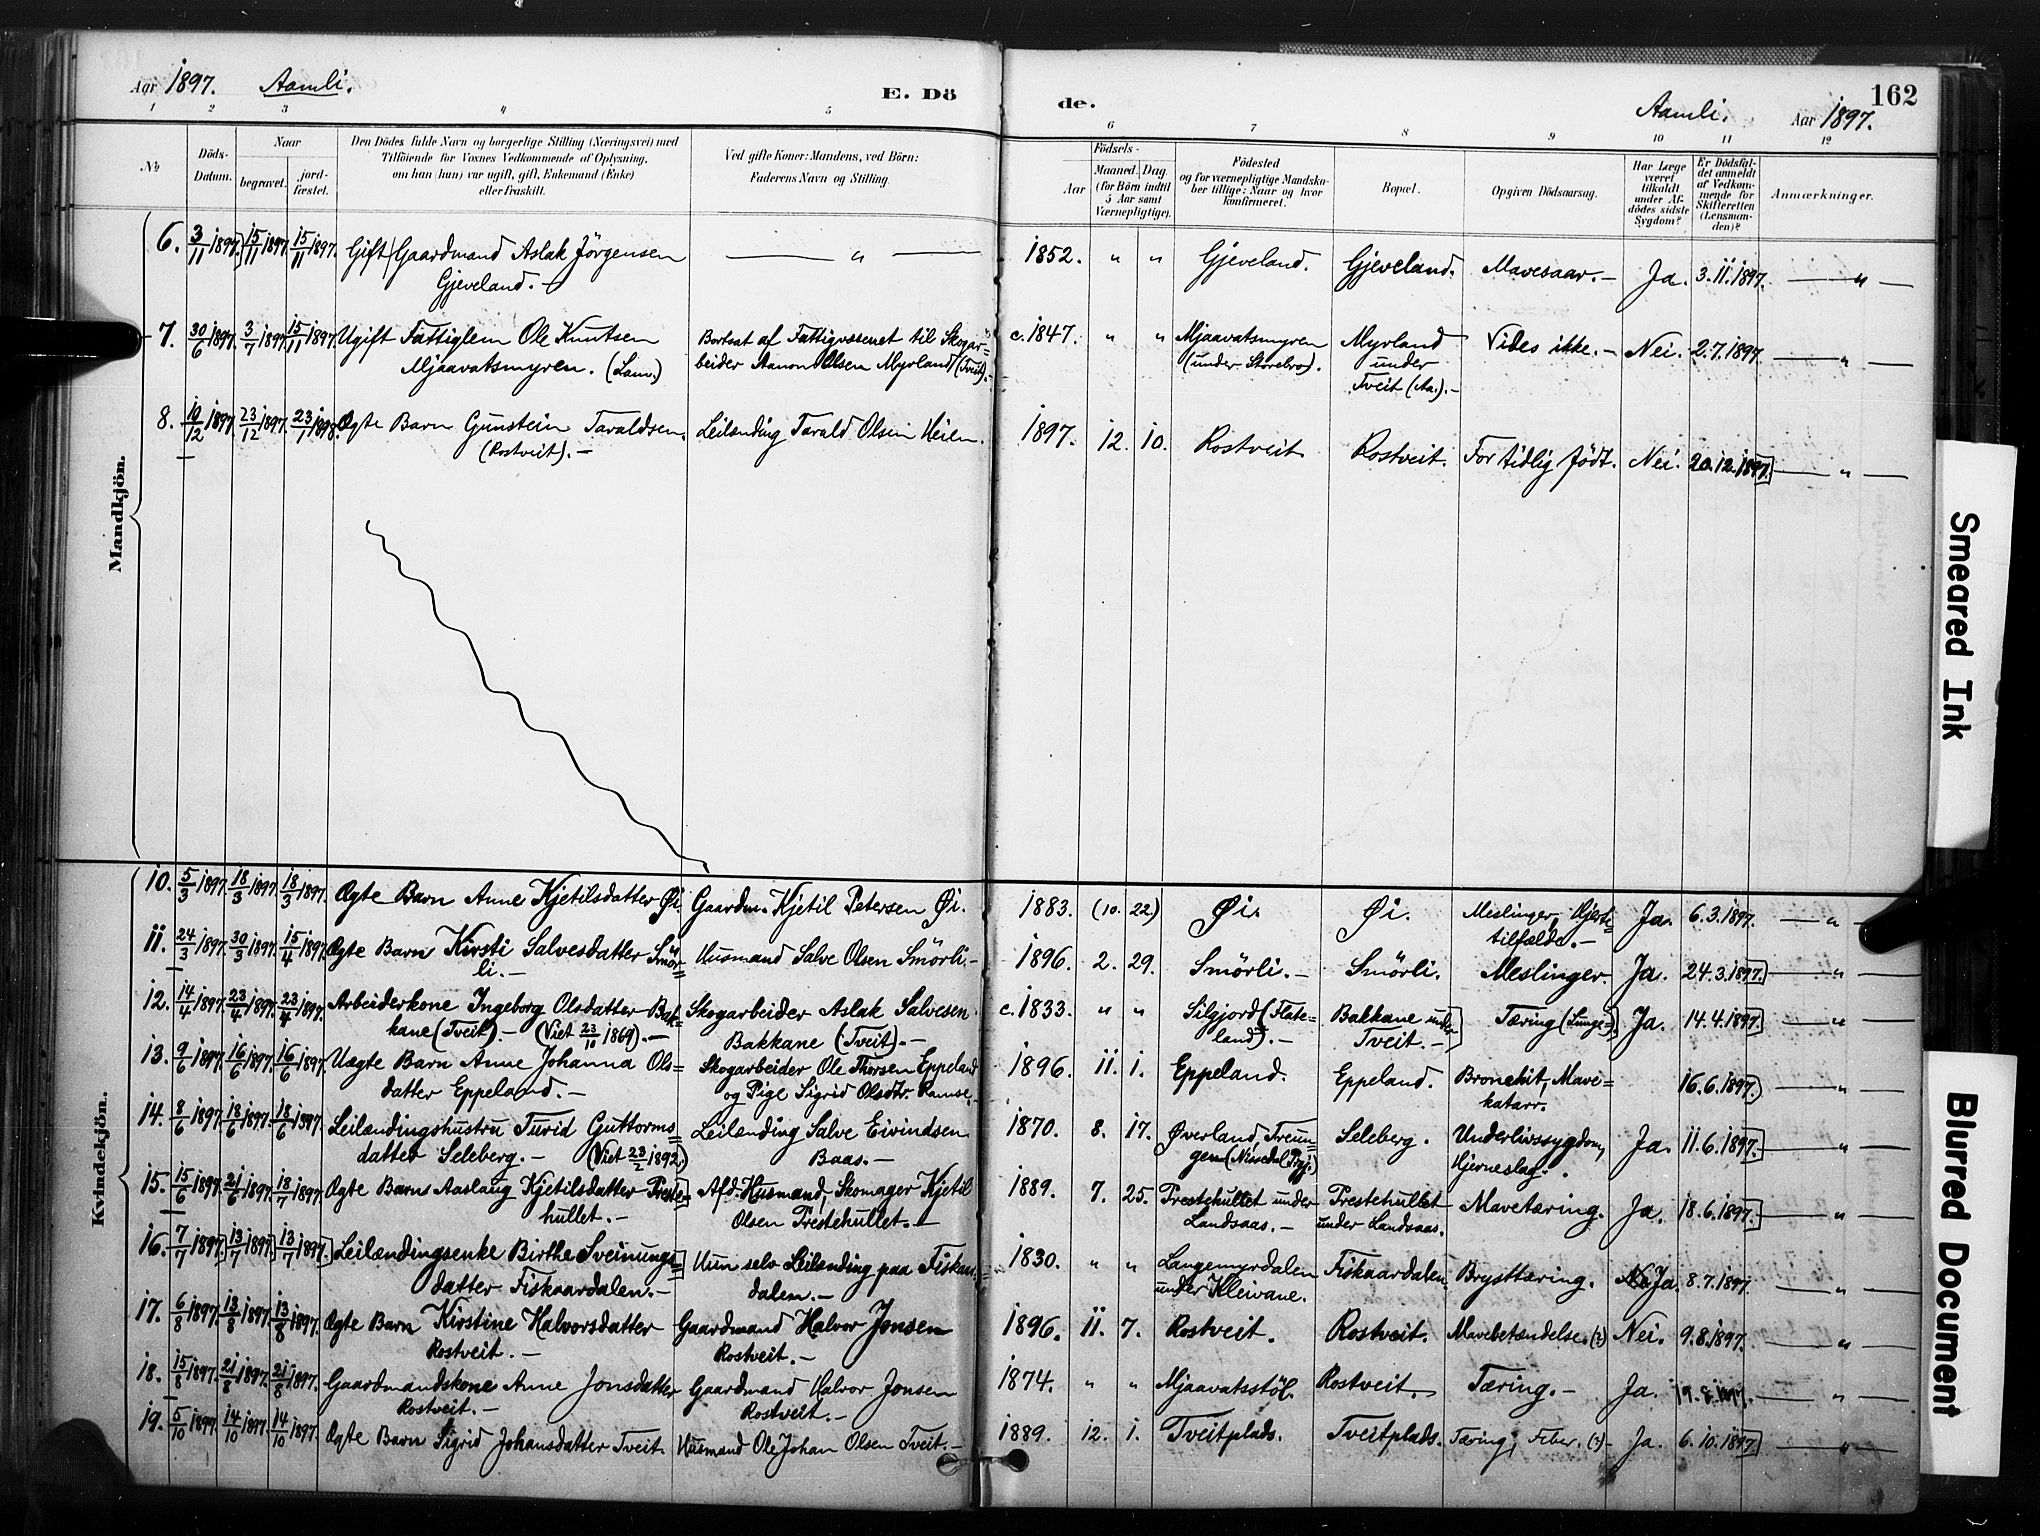 Aar 1897. Aamli. E. Dö de. Aamli. Aar 1897. 162
1 2 3 4 5 6 7 8 9 10 11 12
No
Döds-Datum.
Naar
begravet.
jord-fæstet.
Den Dödes fulde Navn og borgerlige Stilling (Næringsvei) med
Tilföiende for Voxnes Vedkommende af Oplysning,
om han (hun) var ugift, gift, Enkemand (Enke)
eller fraskilt.
Ved gifte Koner: Mandens, ved Börn:
Faderens Navn og Stilling.
Födsels-
Aar
Maaned. Dag.
(for Börn indtil
5 Aar samt
Værnepligtige).
Födested
og for værnepligtige Mandska-
ber tillige: Naar og hvor
konfirmeret.
Bopæl.
Opgiven Dödsaarsag.
Har Læge
været
tilkaldt
under Af-
dödes sidste
Sygdom?
Er Dödsfal-
det anmeldt
af Vedkom-
mende for
Skifteretten
(Lensman-
den)?
Anmærkninger.
Mandkjön.
6. 3/11 1897. 15/11 1897. 15/11 1897. Gift Gaardmand Aslak Jörgensen — " — 1852. " " Gjeveland. Gjeveland. Mavesaar. — Ja. 3.11.1897. — " —
Gjeveland. —
7. 30/6 1897. 3/7 1897. 15/11 1897. Ugift Fattiglem Ole Knutsen Bortsat af Fattigvæsenet til Skogar= c. 1847. " " Mjaavatsmyren Myrland Vides ikke. — Nei. 2.7.1897. — " —
Mjaavatsmyren. (Lam.) beider Aanon Olsen Myrland (Tveit). — (under Storebro). under
Tveit (Aa.). —
8. 10/12 1897. 23/12 1897. 23/1 1898. Ægte Barn Gunstein Taraldsen. Leilænding Tarald Olsen Heien. 1897. 12. 10. Rostveit Rostveit. For tidlig født. Nei. 20.12.1897. — " —
(Rostveit). —
Kvindekjön.
10. 5/3 1897. 18/3 1897. 18/3 1897. Ægte Barn Anne Kjetilsdatter Øi. Gaardm. Kjetil Petersen Øi. 1883. (10. 22) Øi. Øi. Meslinger, Hjerte= Ja. 6.3.1897. — " —
tilfælde. —
11. 24/3 1897. 30/3 1897. 15/4 1897. Ægte Barn Kirsti Salvesdatter Smör= Husmand Salve Olsen Smörli. — 1896. 2. 29. Smörli. — Smörli. Meslinger. Ja. 24.3.1897. — " —
li. —
12. 14/4 1897. 23/4 1897. 23/4 1897. Arbeiderkone Ingeborg Olsdatter Bak= Skogarbeider Aslak Salvesen c. 1833. " " Silgjord (Flate= Bakkane under Tæring (Lunge=). Ja. 14.4.1897. — " —
kane (Tveit). — (Viet 23/10 1869). — Bakkane (Tveit). — land). — Tveit. —
13. 9/6 1897. 16/6 1897. 16/6 1897. Uægte Barn Anne Johanna Ols= Skogarbeider Ole Thorsen Eppeland 1896. 11. 1. Eppeland. Eppeland. Bronchit, Mave= 16.6.1897. — " —
datter Eppeland. — og Pige Sigrid Olsdtr. Ramse. katarr.
14. 8/6 1897. 18/6 1897. 18/6 1897. Leilændingshustru Turid Guttorms= Leilænding Salve Eivindsen 1870. 8. 17. Øverland, Treun= Seleberg. Underlivssygdom, Ja. 11.6.1897. — " —
datter Seleberg. — (Viet 23/2 1892.) Baas. — gen (Nissedal Pgj.) Hjerneslag.
15. 15/6 1897. 21/6 1897. 18/7 1897. Ægte Barn Aaslaug Kjetilsdatter Preste= Afd. Husmand, Skomager Kjetil 1889. 7. 25. Prestehullet under Prestehullet Mavetæring. Ja. 18.6.1897. — " —
hullet. — Olsen Prestehullet. — Landsaas. — under Landsaas.
16. 7/7 1897. 13/7 1897. 13/7 1897. Leilændingsenke Birthe Sveinungs= Hun selv Leilænding paa Fiskaar= 1830. " " Langemyrdalen Fiskaardalen. Brysttæring. Ja. 8.7.1897. — " —
datter Fiskaardalen. — dalen. — under Kleivane.
17. 6/8 1897. 13/8 1897. 13/8 1897. Ægte Barn Kirstine Halvorsdatter Gaardmand Halvor Jonsen 1896. 11. 7. Rostveit. Rostveit. Mavebetændelse. (?) Nei. 9.8.1897. — " —
Rostveit. — Rostveit. —
18. 15/8 1897. 21/8 1897. 21/8 1897. Gaardmandskone Anne Jonsdatter Gaardmand Halvor Jonsen 1874. " " Mjaavatsstöl. Rostveit. — Tæring. — Ja. 19.8.1897. — " —
Rostveit. — Rostveit. —
19. 5/10 1897. 14/10 1897. 14/10 1897. Ægte Barn Sigrid Johansdatter Tveit. Husmand Ole Johan Olsen Tveit. — 1889. 12. 1. Tveitplads. Tveitplads. Tæring; Feber. (?) — Ja. 6.10.1897. — " —
Smeared Ink
Blurred Document